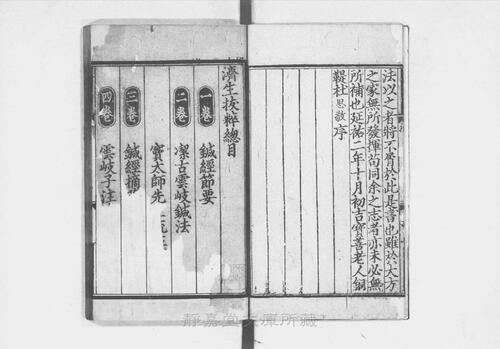 法以之者將不胥於此是書也雖於大方
之家無所發揮苟同余之志者亦未必無
所補也延祐二年十月初吉寶善老人銅
鞮杜思敬序
濟生拔粹總目
一卷
鍼經節要
二卷
潔古雲岐鍼法
竇太師先
三卷
鍼經摘
四卷
雲岐子注
靜嘉堂文庫所藏